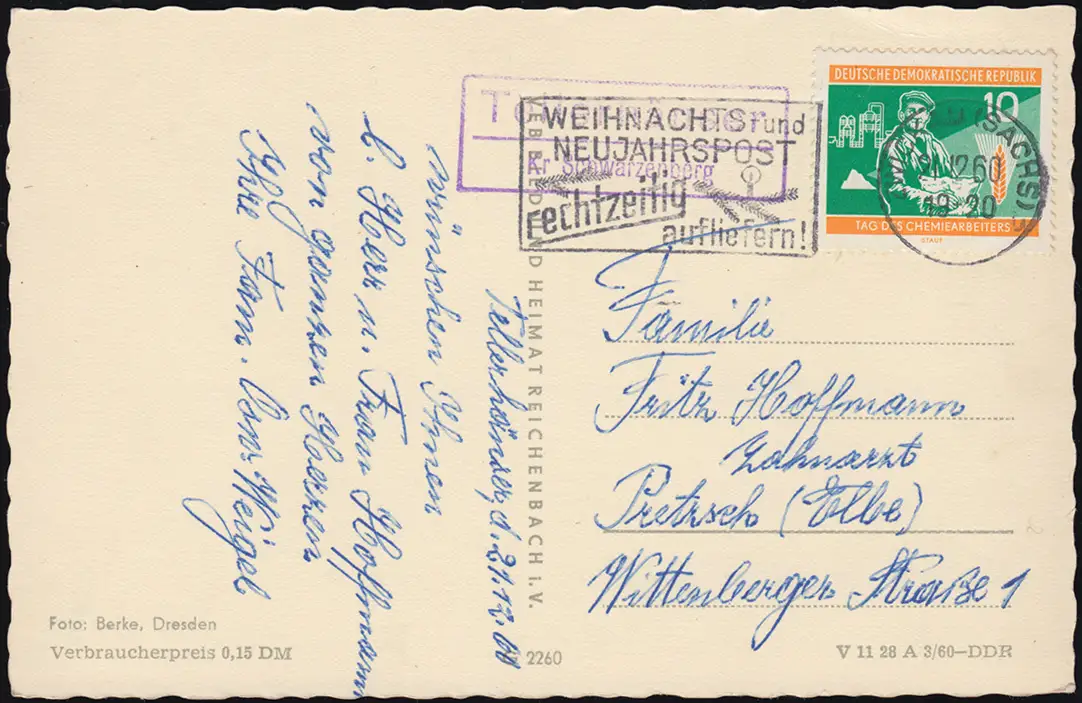 Tellerhäuser, d. 21.12.60
wünschen Ihnen
l. Herr u. Frau Hoffmann
von ganzen Herzen
Ihre Fam. Weigel
Foto: Berke, Dresden
Verbraucherpreis 0,15 DM
VEB BILD UND HEIMAT REICHENBACH I. V.
2260
Tellerhäuser
Kr Schwarzenberg
WEIHNACHTS- und
NEUJAHRSPOST
rechtzeitig
aufliefern!
DEUTSCHE DEMOKRATISCHE REPUBLIK
10
TAG DES CHEMIEARBEITERS
STAUF
(SACHS)
12.60
-20
Familie
Fritz Hoffmann
Zahnarzt
Pretzsch (Elbe)
Wittenberger Straße 1
V 11 28 A 3/60–DDR